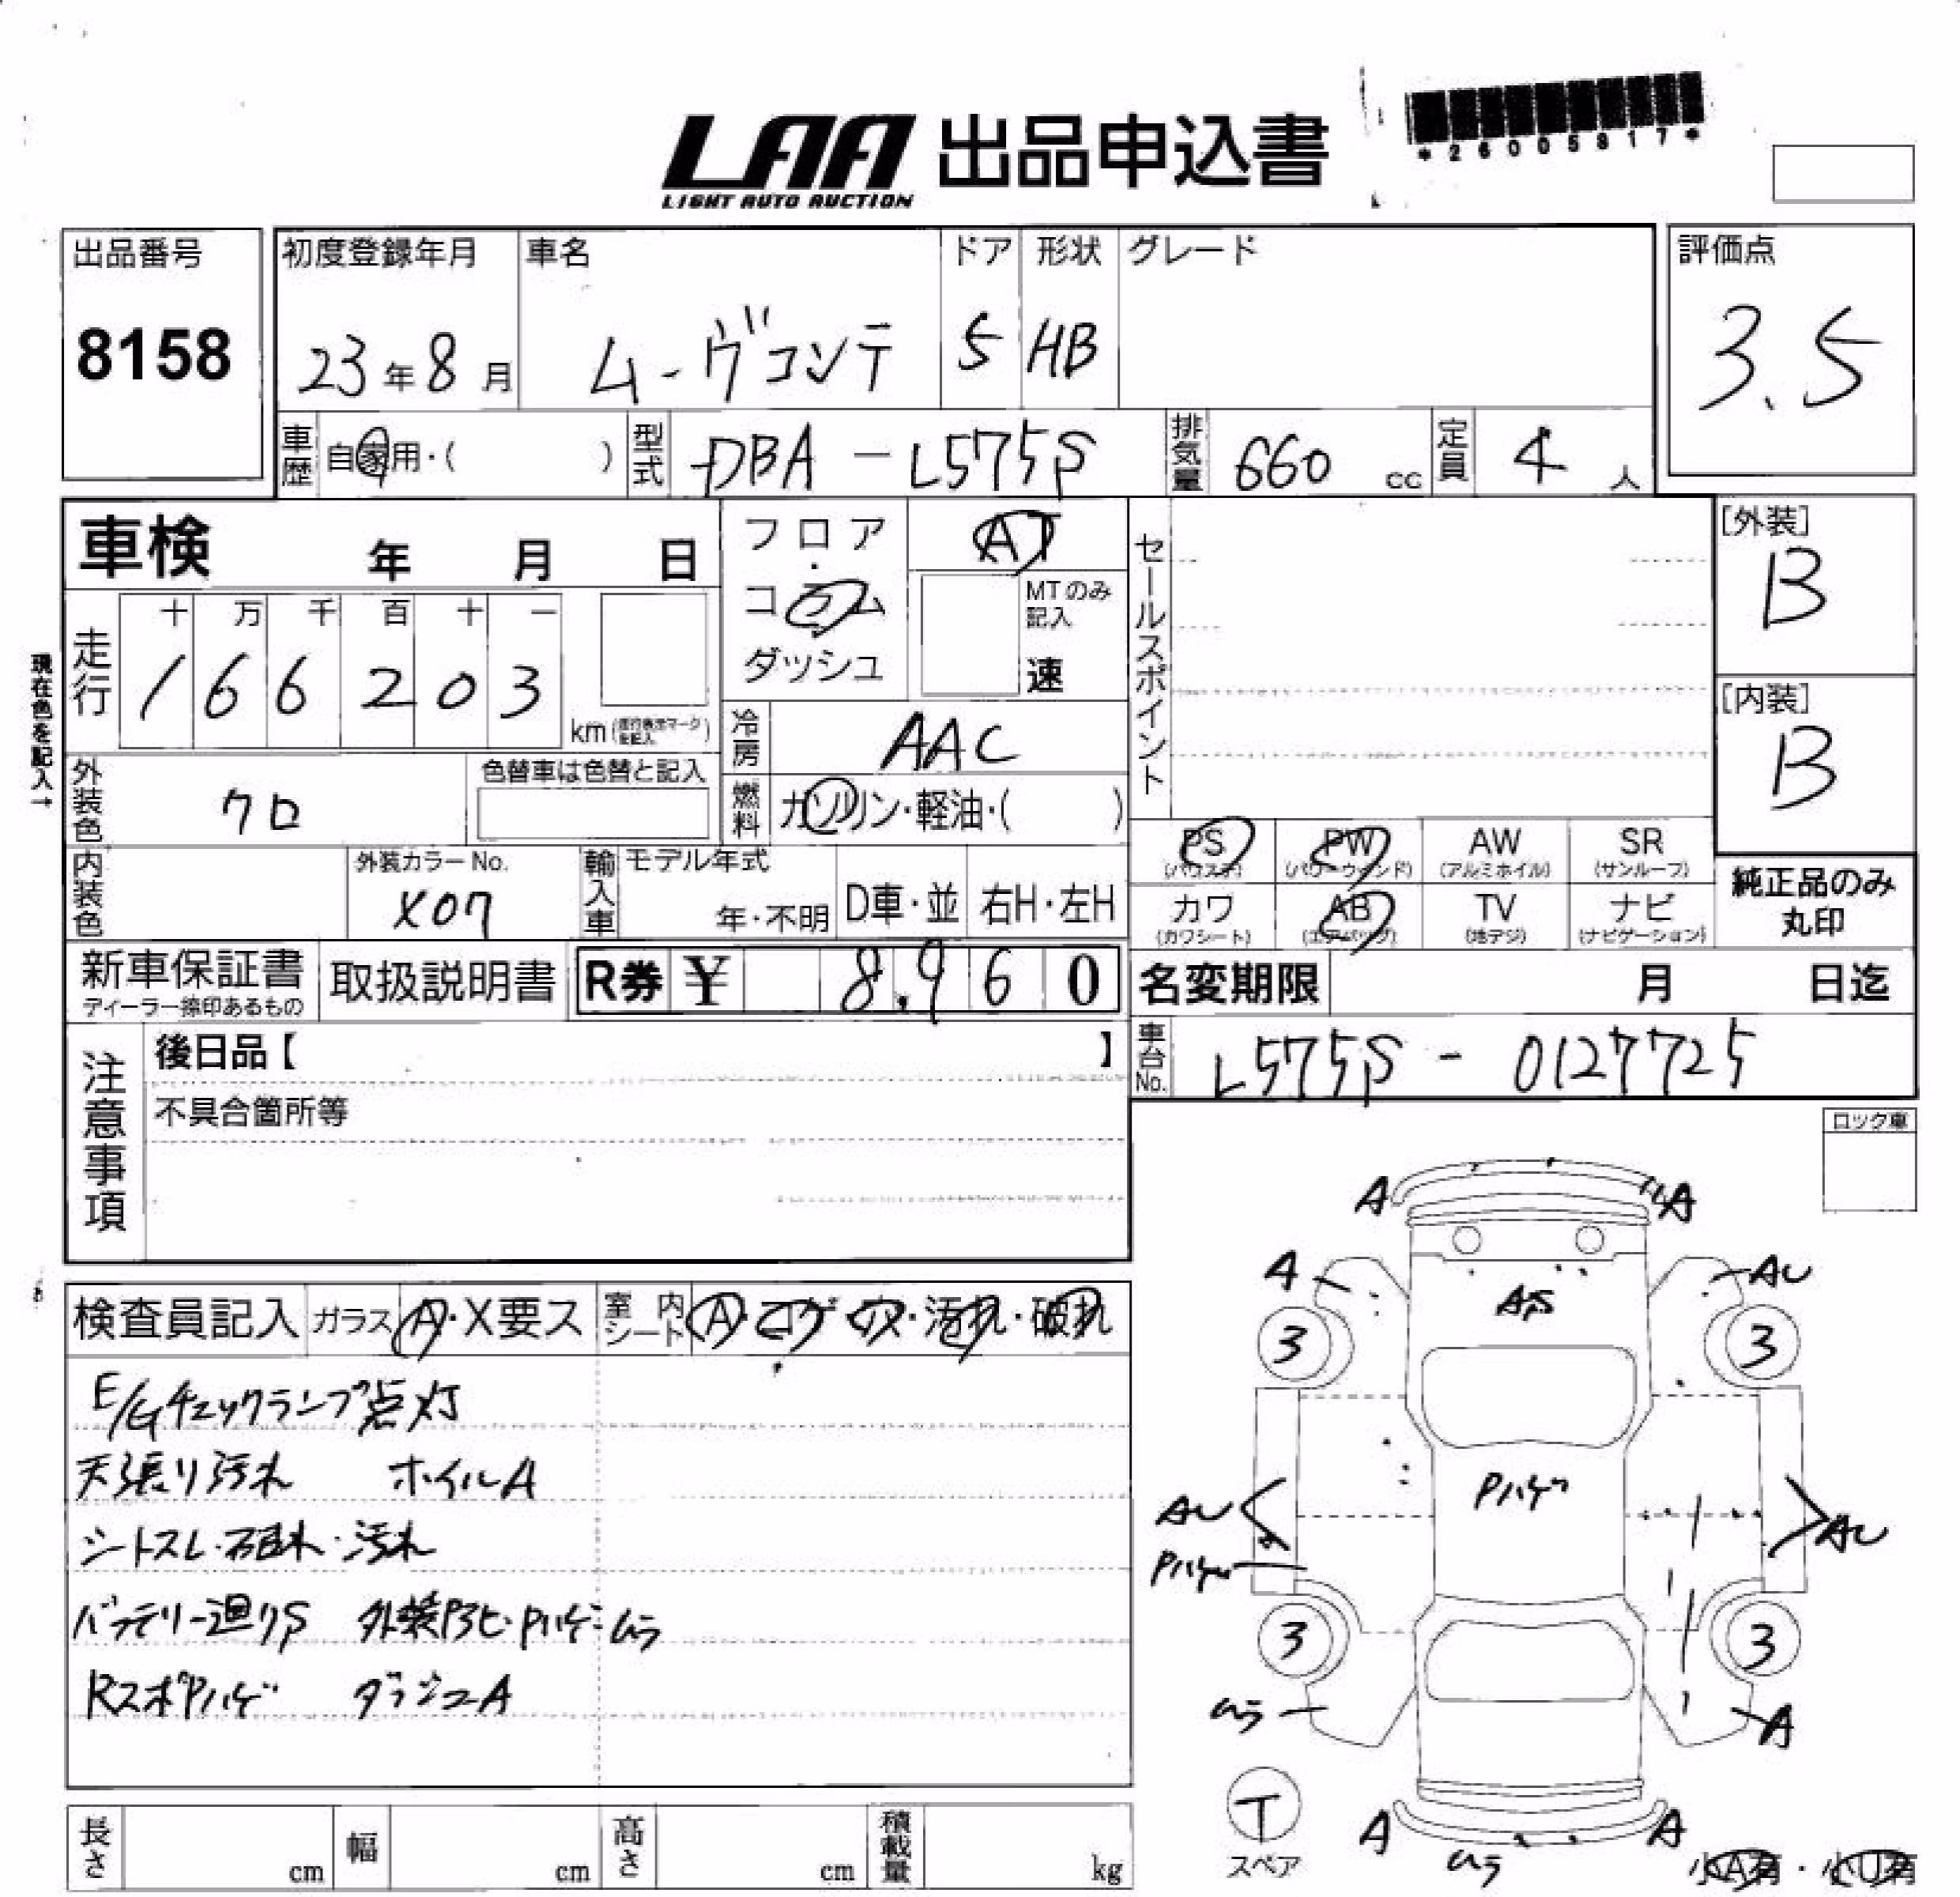 LAA 出品申込書
LIGHT AUTO AUCTION
*26005817*
出品番号
8158
初度登録年月
23年8月
車名
ムーヴコンテ
ドア
5
形状
HB
グレード
評価点
3.5
車歴
自家用・( )
型式
DBA-L575S
排気量
660 cc
定員
4人
車検 年 月 日
フロア・コラム
ダッシュ
AT
MTのみ記入
速
セールスポイント
[外装]
B
[内装]
B
現在色を記入→
走行
十 万 千 百 十 一
1 6 6 2 0 3
km
冷房
AAC
外装色
クロ
色替車は色替と記入
燃料
ガソリン・軽油・( )
PS
(パワステ)
PW
(パワーウィンド)
AW
(アルミホイル)
SR
(サンルーフ)
カワ
(カワシート)
AB
(エアバッグ)
TV
(地デジ)
ナビ
(ナビゲーション)
純正品のみ
丸印
内装色
外装カラーNo.
X07
輸入車
モデル年式
年・不明
D車・並
右H・左H
新車保証書
ディーラー捺印あるもの
取扱説明書
R券 ¥ 8,960
名変期限 月 日迄
車台No.
L575S-0127725
注意事項
後日品【 】
不具合箇所等
ロック車
検査員記入
ガラス A・X要ス
室内シート A・コゲ・穴・汚れ・破れ
E/Gチェックランプ点灯
天張り汚れ ホイルA
シートスレ・破れ・汚れ
バッテリー廻りS 外装アセ・Pハゲ・ムラ
RスポPハゲ ダッシュA
A
A
A
AU
AS
3
3
Pハゲ
AU
AU
Pハゲ
3
3
ムラ
A
T
スペア
A
A
ムラ
小A有・小U有
長さ cm
幅 cm
高さ cm
積載量 kg